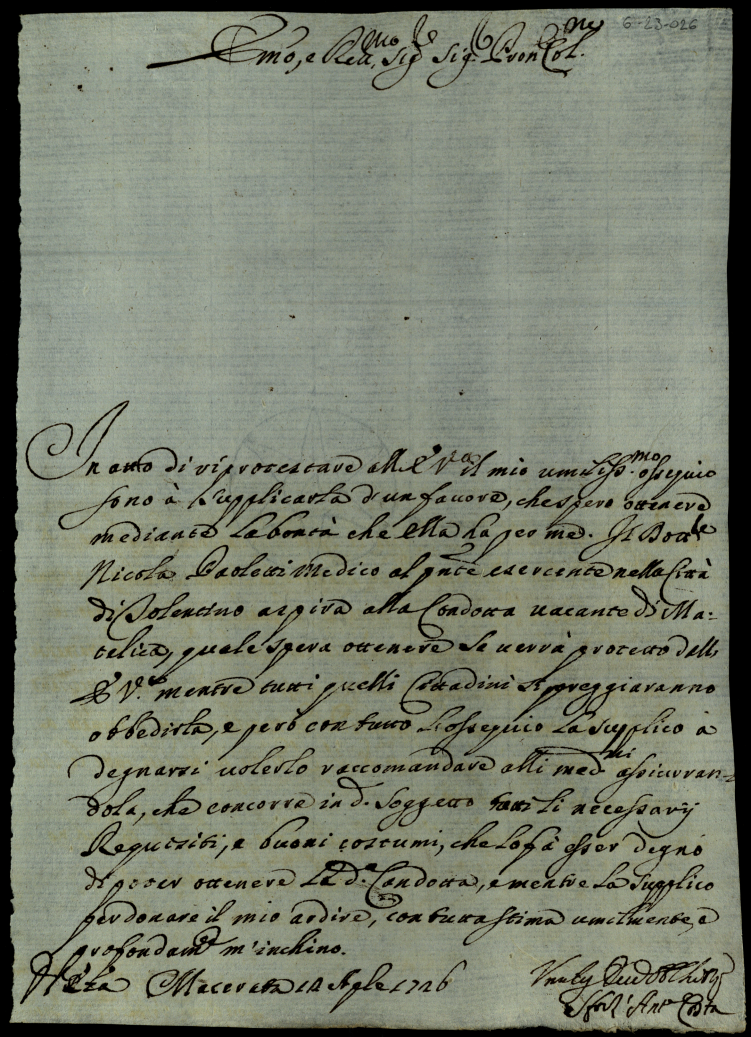 6-23-026
Emo, e Reu.mo Sig.re Sig.r Pron Col.mo
In atto di riprotestare all'E V.a il mio umiliss.mo ossequio
sono à supplicarla d'un favore, che spero ottenere
mediante la bontà che ella ha per me. Il Dott.re
Nicola Paoletti Medico al pnte esercente nella Città
di Tolentino aspira alla Condotta uacante di Ma-
telica, quale spera ottenere se uerrà protetto dall'
E V.a mentre tutti quelli Cittadini si preggiaranno
obbedirla, e però con tutto l'ossequio la supplico à
degnarsi uolerlo raccomandare alli med.mi assicuran-
dola, che concorre in d.o soggetto tutti li necessarij
Requisiti, e buoni costumi, che lo fà esser degno
di poter ottenere la d.a Condotta, e mentre la supplico
perdonare il mio ardire, con tutta stima umilmente, e
profondam.te m'inchino.
Macerata 12 Aple 1726
Costa